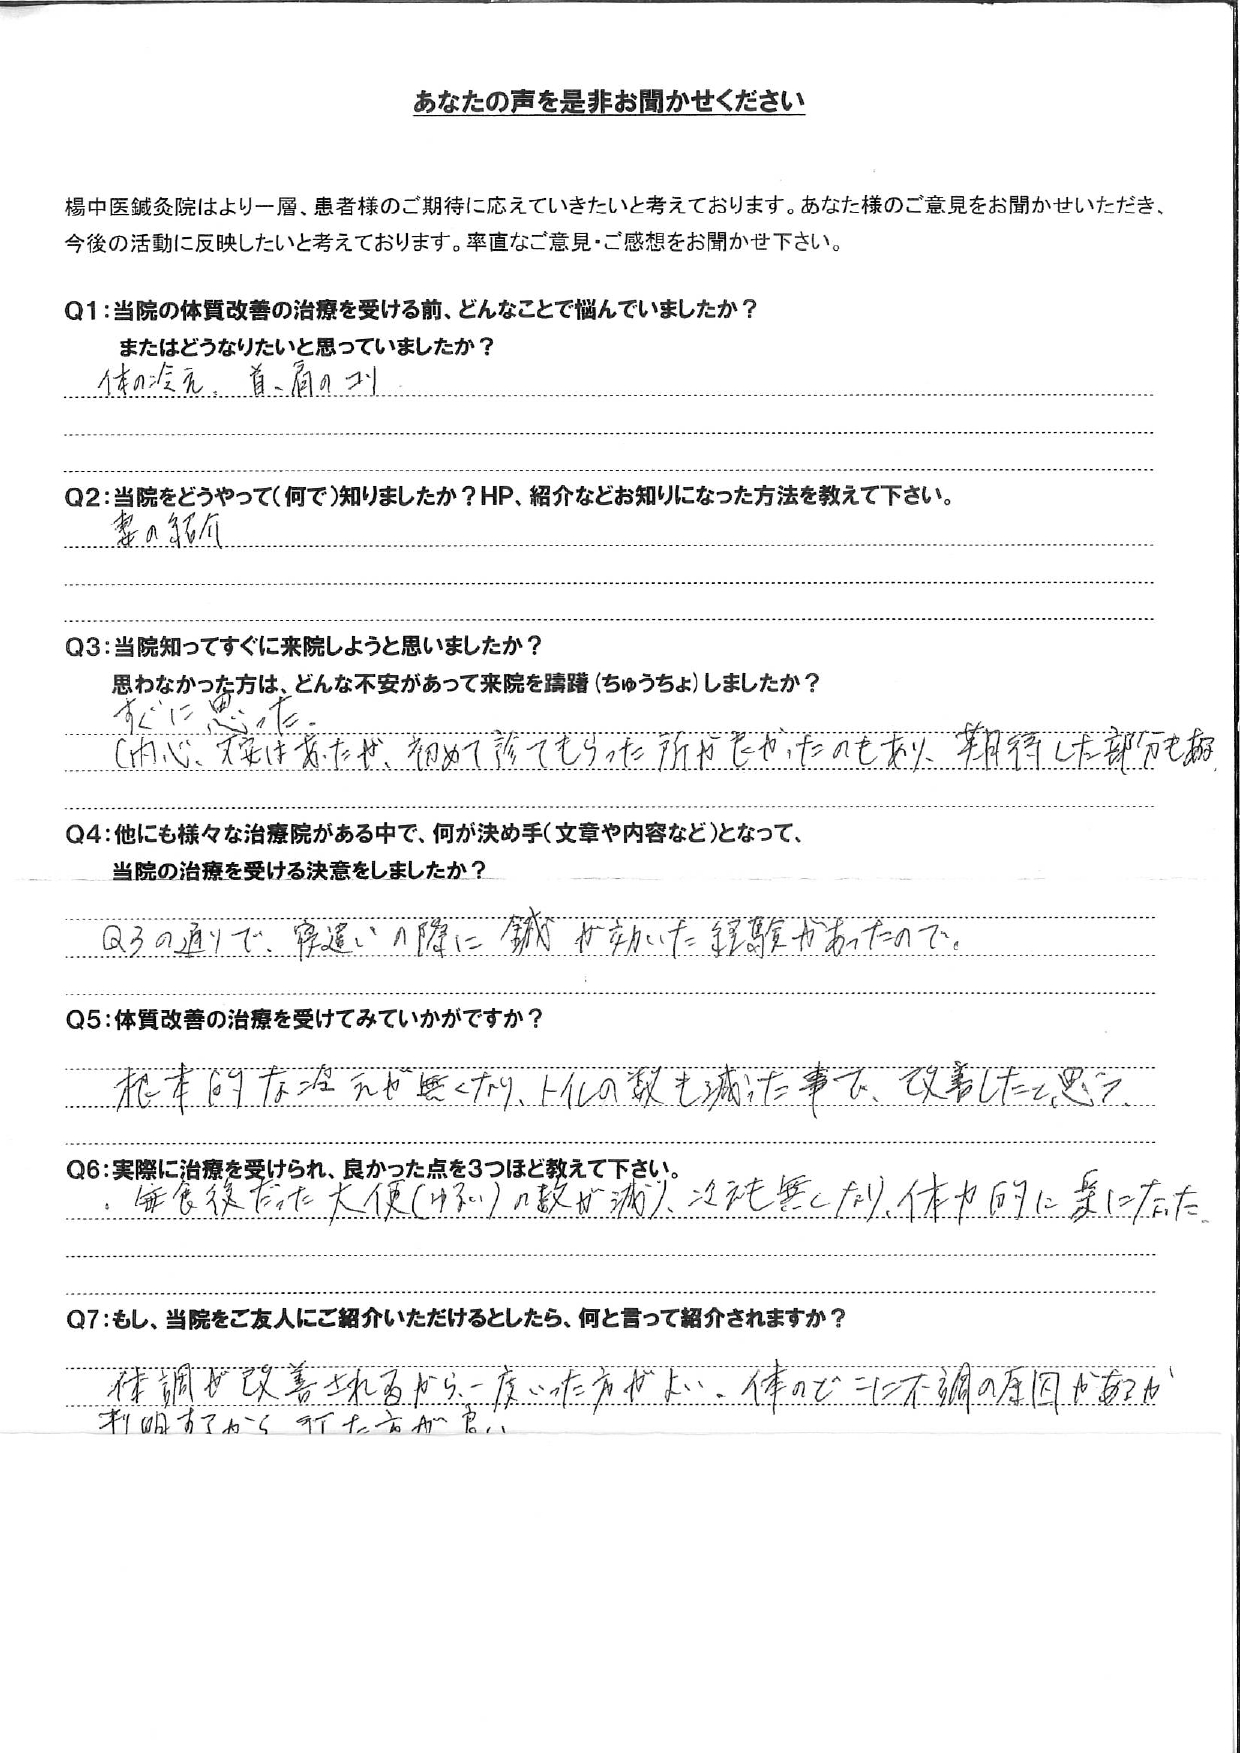 あなたの声を是非お聞かせください
楊中医鍼灸院はより一層、患者様のご期待に応えていきたいと考えております。あなた様のご意見をお聞かせいただき、
今後の活動に反映したいと考えております。率直なご意見・ご感想をお聞かせ下さい。
Q1:当院の体質改善の治療を受ける前、どんなことで悩んでいましたか?
またはどうなりたいと思っていましたか?
体の冷え、首、肩のコリ
Q2:当院をどうやって(何で)知りましたか?HP、紹介などお知りになった方法を教えて下さい。
妻の紹介
Q3:当院知ってすぐに来院しようと思いましたか?
思わなかった方は、どんな不安があって来院を躊躇(ちゅうちょ)しましたか?
すぐに思った。
(内心、不安はあったが、初めて診てもらった所が良かったのもあり、期待した部分も
Q4:他にも様々な治療院がある中で、何が決め手(文章や内容など)となって、
当院の治療を受ける決意をしましたか?
Q3の通りで、寝違いの際に鍼が効いた経験があったので。
Q5:体質改善の治療を受けてみていかがですか?
根本的な冷えが無くなり、トイレの数も減った事で、改善したと思う。
Q6:実際に治療を受けられ、良かった点を3つほど教えて下さい。
・毎食後だった大便(ゆるい)の数が減り、冷えも無くなり、体力的に楽になった。
Q7:もし、当院をご友人にご紹介いただけるとしたら、何と言って紹介されますか?
体調が改善されるから、一度いった方がよい。体のどこに不調の原因があるか
判明するから 行った方が良い